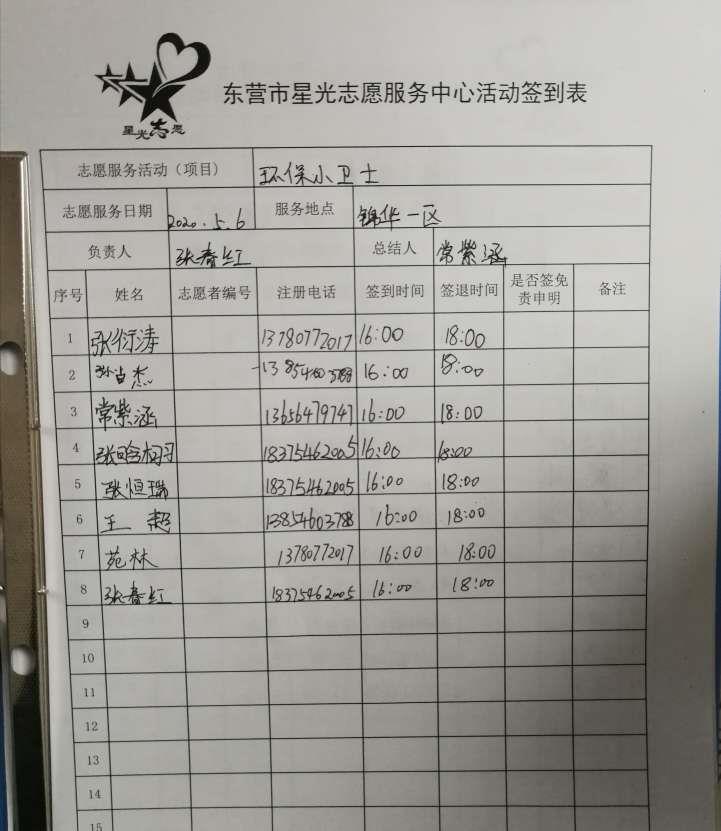 星光志愿
东营市星光志愿服务中心活动签到表
志愿服务活动（项目） 环保小卫士
志愿服务日期 2020.5.6 服务地点 锦华一区
负责人 张春红 总结人 常紫涵
序号 姓名 志愿者编号 注册电话 签到时间 签退时间 是否签免责申明 备注
1 张衍涛 13780772017 16:00 18:00
2 杰 13854603788 16:00 18:00
3 常紫涵 13656479747 16:00 18:00
4 张晗 18375462005 16:00 18:00
5 张恒瑞 18375462005 16:00 18:00
6 王超 13854603788 16:00 18:00
7 苑林 13780772017 16:00 18:00
8 张春红 18375462005 16:00 18:00
9
10
11
12
13
14
15